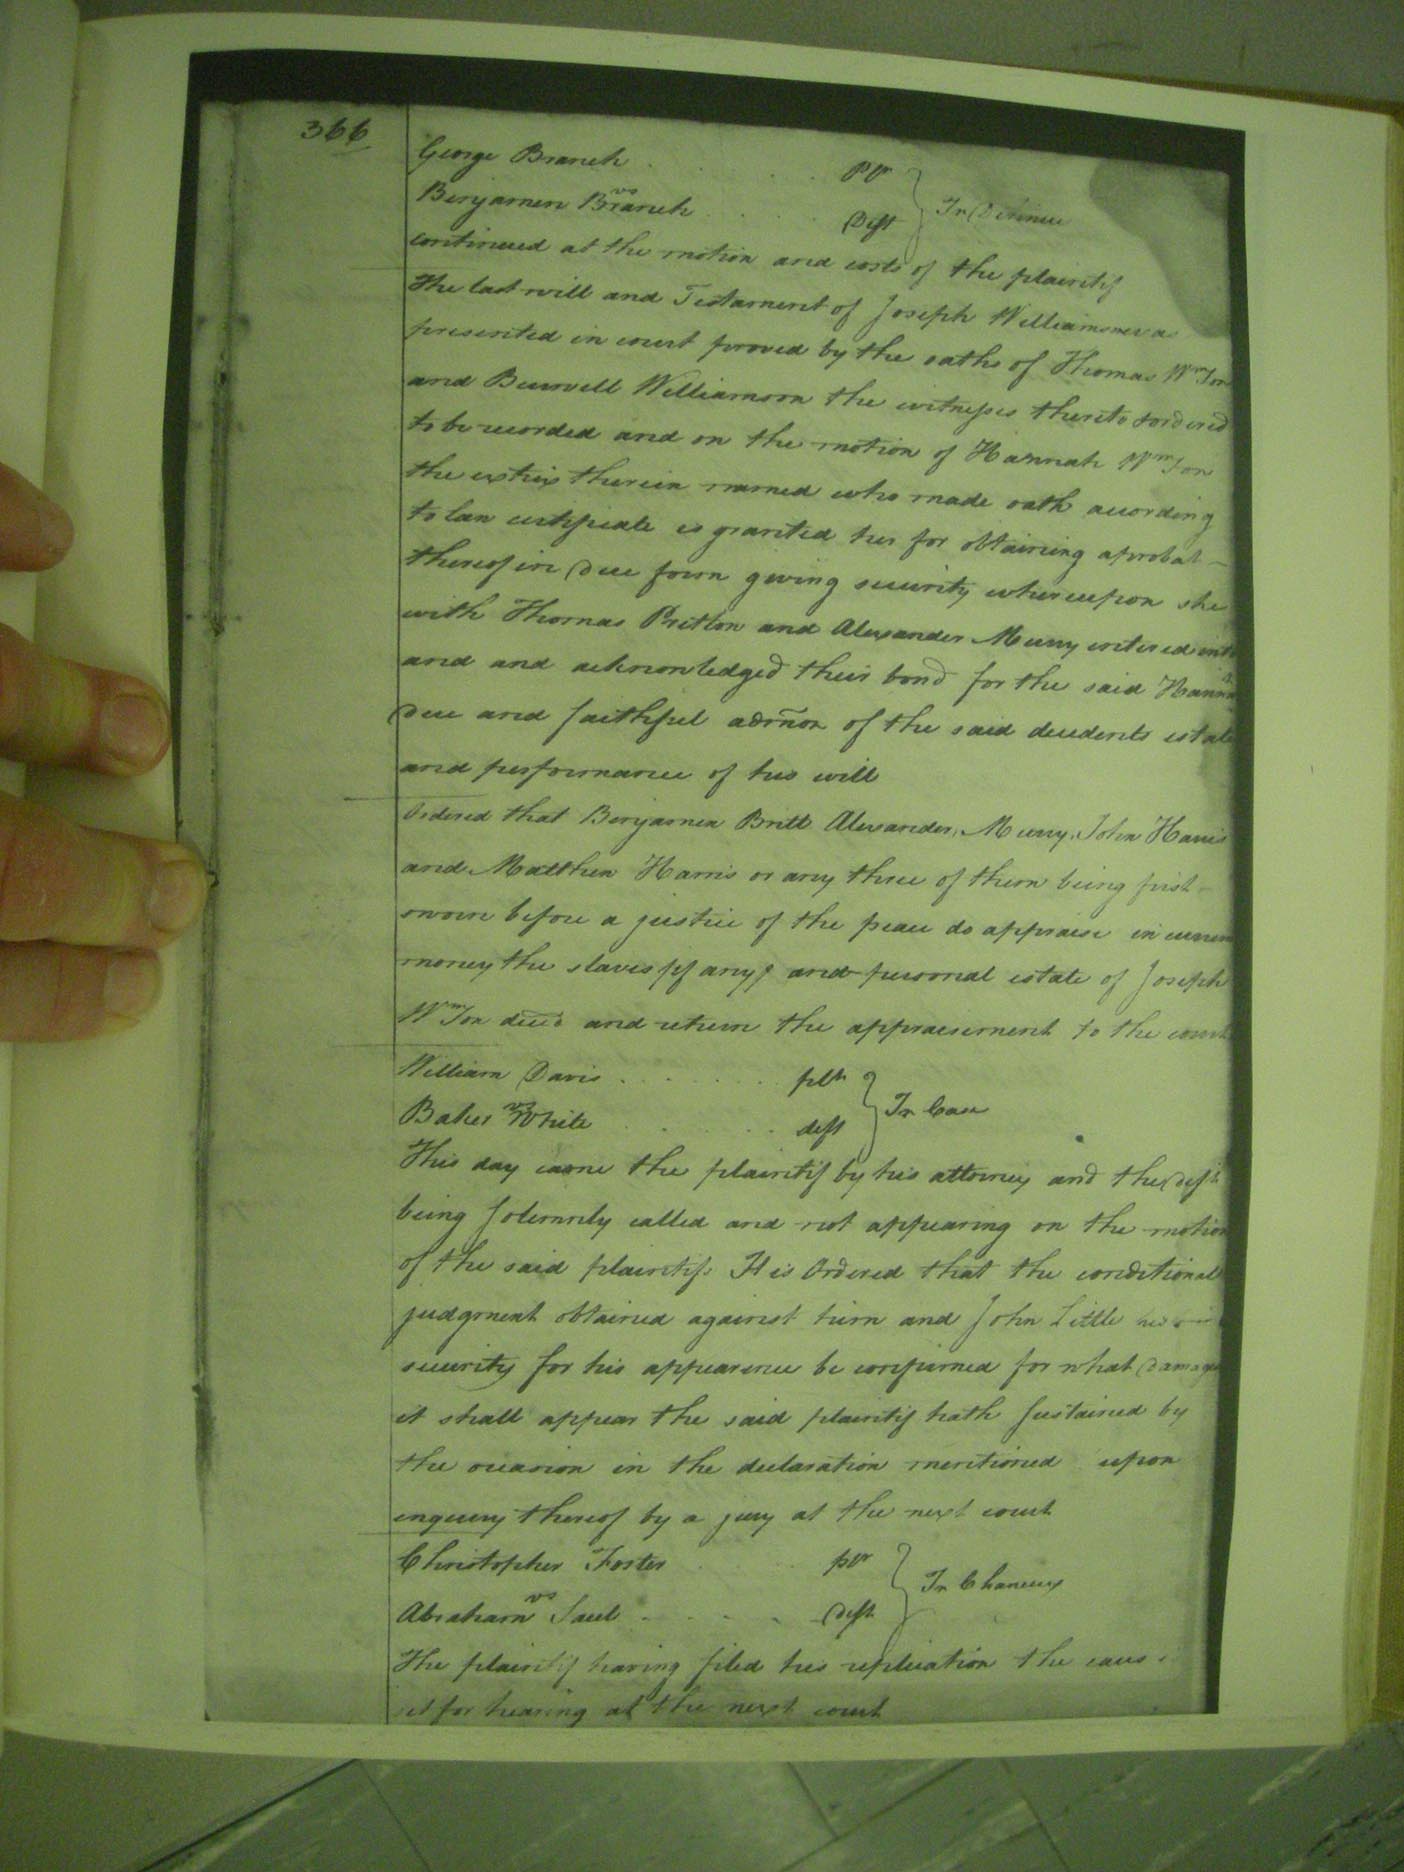 366
George Branch . . . . plt
vs
Benjamin Branch . . . Deft } In Detinue
continued at the motion and costs of the plaintif
The last will and Testament of Joseph Williamson was
presented in court proved by the oaths of Thomas Wmson
and Burwell Williamson the witnesses thereto & ordered
to be recorded and on the motion of Hannah Wmson
the extrix therein named who made oath according
to law certificate is granted her for obtaining a probat
thereof in due form giving security whereupon she
with Thomas Pritlon and Alexander Murry entered into
and and acknowledged their bond for the said Hannah
due and faithful admon of the said decedents estate
and performance of his will
Ordered that Benjamin Britt Alexander, Murry, John Harris
and Matthew Harris or any three of them being first
sworn before a justice of the peace do appraise in current
money the slaves (if any) and personal estate of Joseph
Wmson decd and return the appraisement to the court
William Davis . . . . . . plt
vs
Baker White . . . . . deft } In Case
This day came the plaintif by his attorney and the deft
being solemnly called and not appearing on the motion
of the said plaintif It is Ordered that the conditional
judgment obtained against him and John Little his
security for his appearence be confirmed for what damages
it shall appear the said plaintif hath sustained by
the occasion in the declaration mentioned upon
enquiry thereof by a jury at the next court
Christopher Foster . . . plt
vs
Abraham Saul . . . . . Deft } In Chancery
The plaintif having filed his replication the caus
set for hearing at the next court